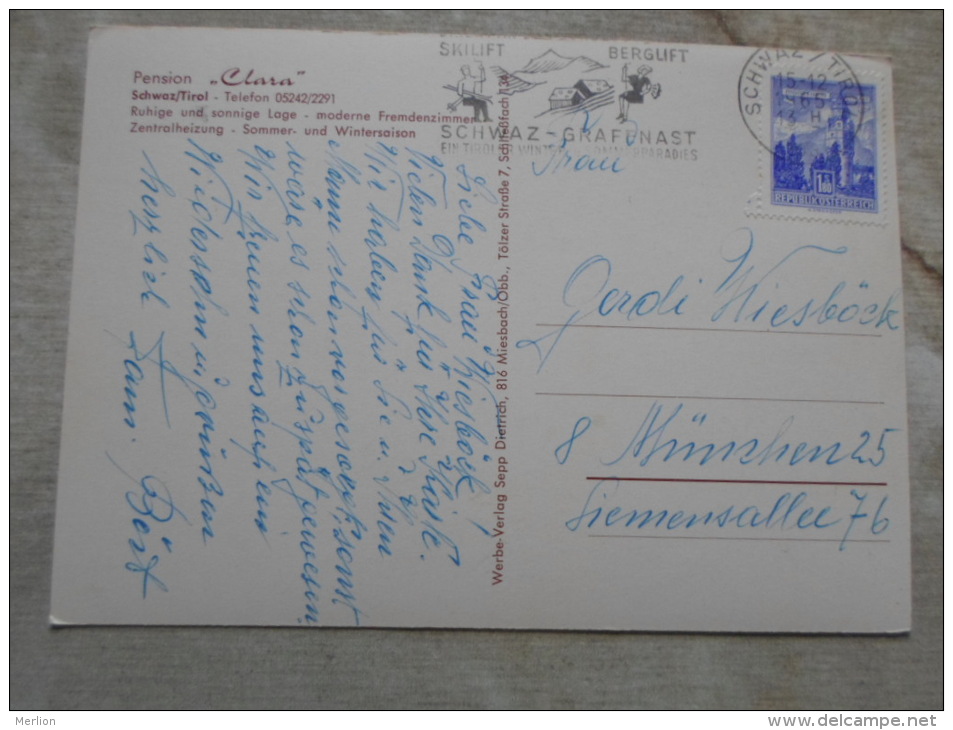 Pension „Clara"
Schwaz/Tirol - Telefon 05242/2291
Ruhige und sonnige Lage - moderne Fremdenzimmer
Zentralheizung - Sommer- und Wintersaison
SKILIFT BERGLIFT
SCHWAZ-GRAFENAST
EIN TIROLER WINTER- SOMMERPARADIES
SCHWAZ / TIROL
15-12
1965
REPUBLIK ÖSTERREICH
Werbe-Verlag Sepp Dietrich, 816 Miesbach/Obb., Tölzer Straße 7, Schließfach 134
Liebe Frau Wiesböck!
Vielen Dank für Ihre Karte.
Wir haben für Sie u. Ihren
Mann schon vorgesorgt sonst
wäre es schon zu spät gewesen
Wir freuen uns auf ein
Wiedersehn u. grüßen
herzlich Fam.
Frau
Gerdi Wiesböck
8 München 25
Siemensallee 76
Merlion
delcampe.net